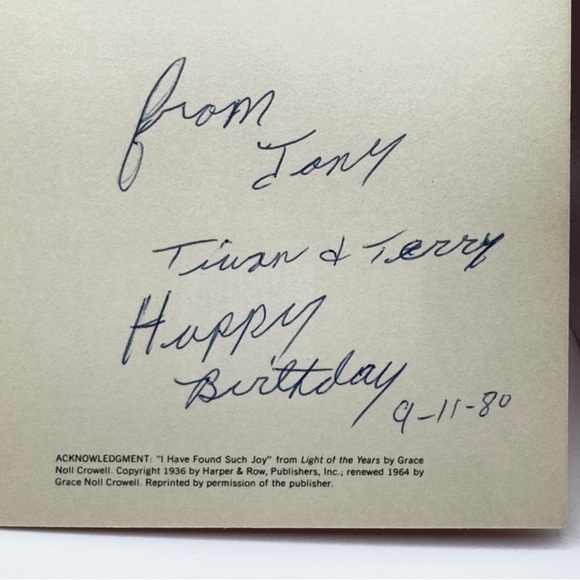 from
Tony
Tiwan & Terry
Happy
Birthday
9-11-80
ACKNOWLEDGMENT: "I Have Found Such Joy" from Light of the Years by Grace
Noll Crowell. Copyright 1936 by Harper & Row, Publishers, Inc.; renewed 1964 by
Grace Noll Crowell. Reprinted by permission of the publisher.